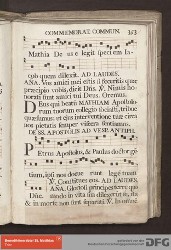 COMMEMORAT. COMMUN. 353
Mathia De us e legit ſpeciem ſa-
cob quem dilexit. AD LAUDES.
ANA. Vos amici mei eſtis ſi feceritis quæ
præcipio vobis, dicit Dñs. ℣. Nimis ho-
norati ſunt amici tui Deus. Oremus.
DEus qui beati MATHIAM Apoſtolo-
rum tuorum collegio ſociaſti, tribue
quæſumus: ut ejus interventione tuæ circa
nos pietatis ſemper viſcera ſentiamus.
DE SS. APOSTOLIS AD VESP. ANTIPH.
PEtrus Apoſtolus, & Paulus doctor gē-
tium, ipſi nos docue runt legē tuam
℣. Conſtitues eos AD LAUDES,
ANA. Glorioſi principes terræ quo
modo in vita ſua dilexerunt ſe, ita
& in morte non ſunt ſeparati. ℣. In omnem
DFG